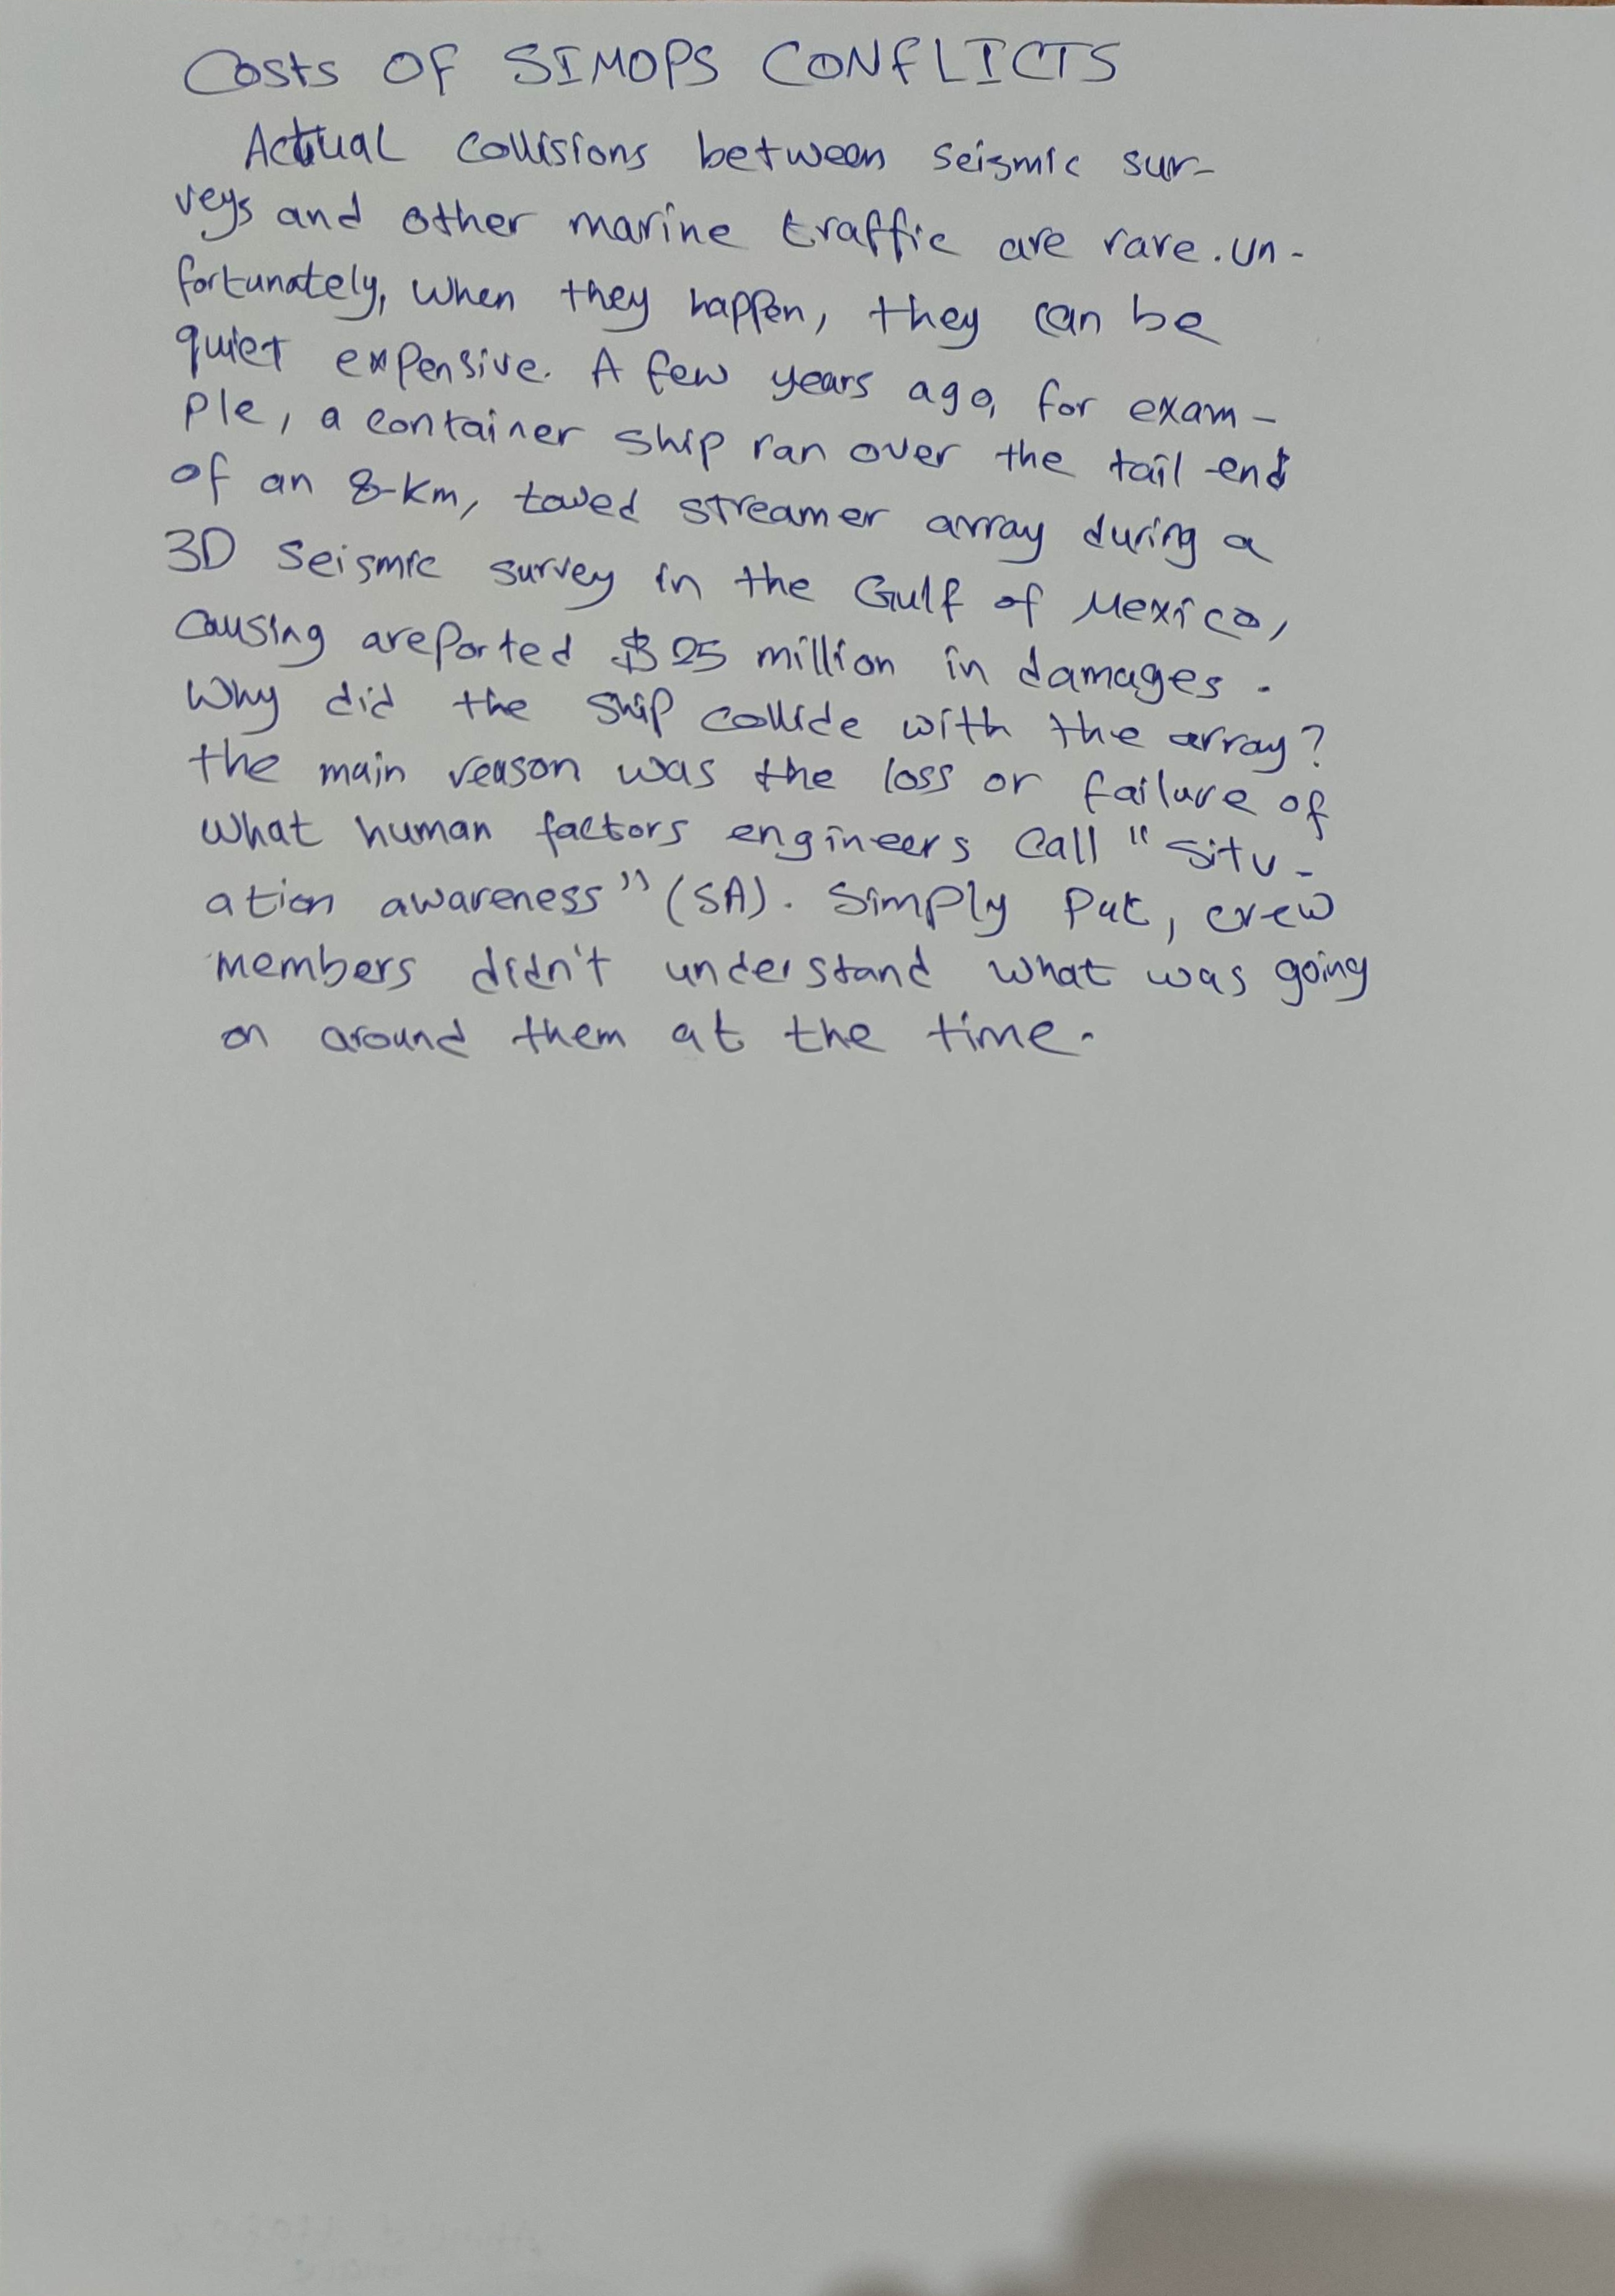 Costs OF SIMOPS CONFLICTS
Actual collisions between seismic sur-
veys and other marine traffic are rare. un-
fortunately, when they happen, they can be
quiet expensive. A few years ago, for exam-
ple, a container ship ran over the tail end
of an 8-km, towed streamer array during a
3D seismic survey in the Gulf of Mexico,
causing areported $25 million in damages.
Why did the ship collide with the array?
the main reason was the loss or failure of
what human factors engineers call "situ-
ation awareness" (SA). Simply put, crew
members didn't understand what was going
on around them at the time.